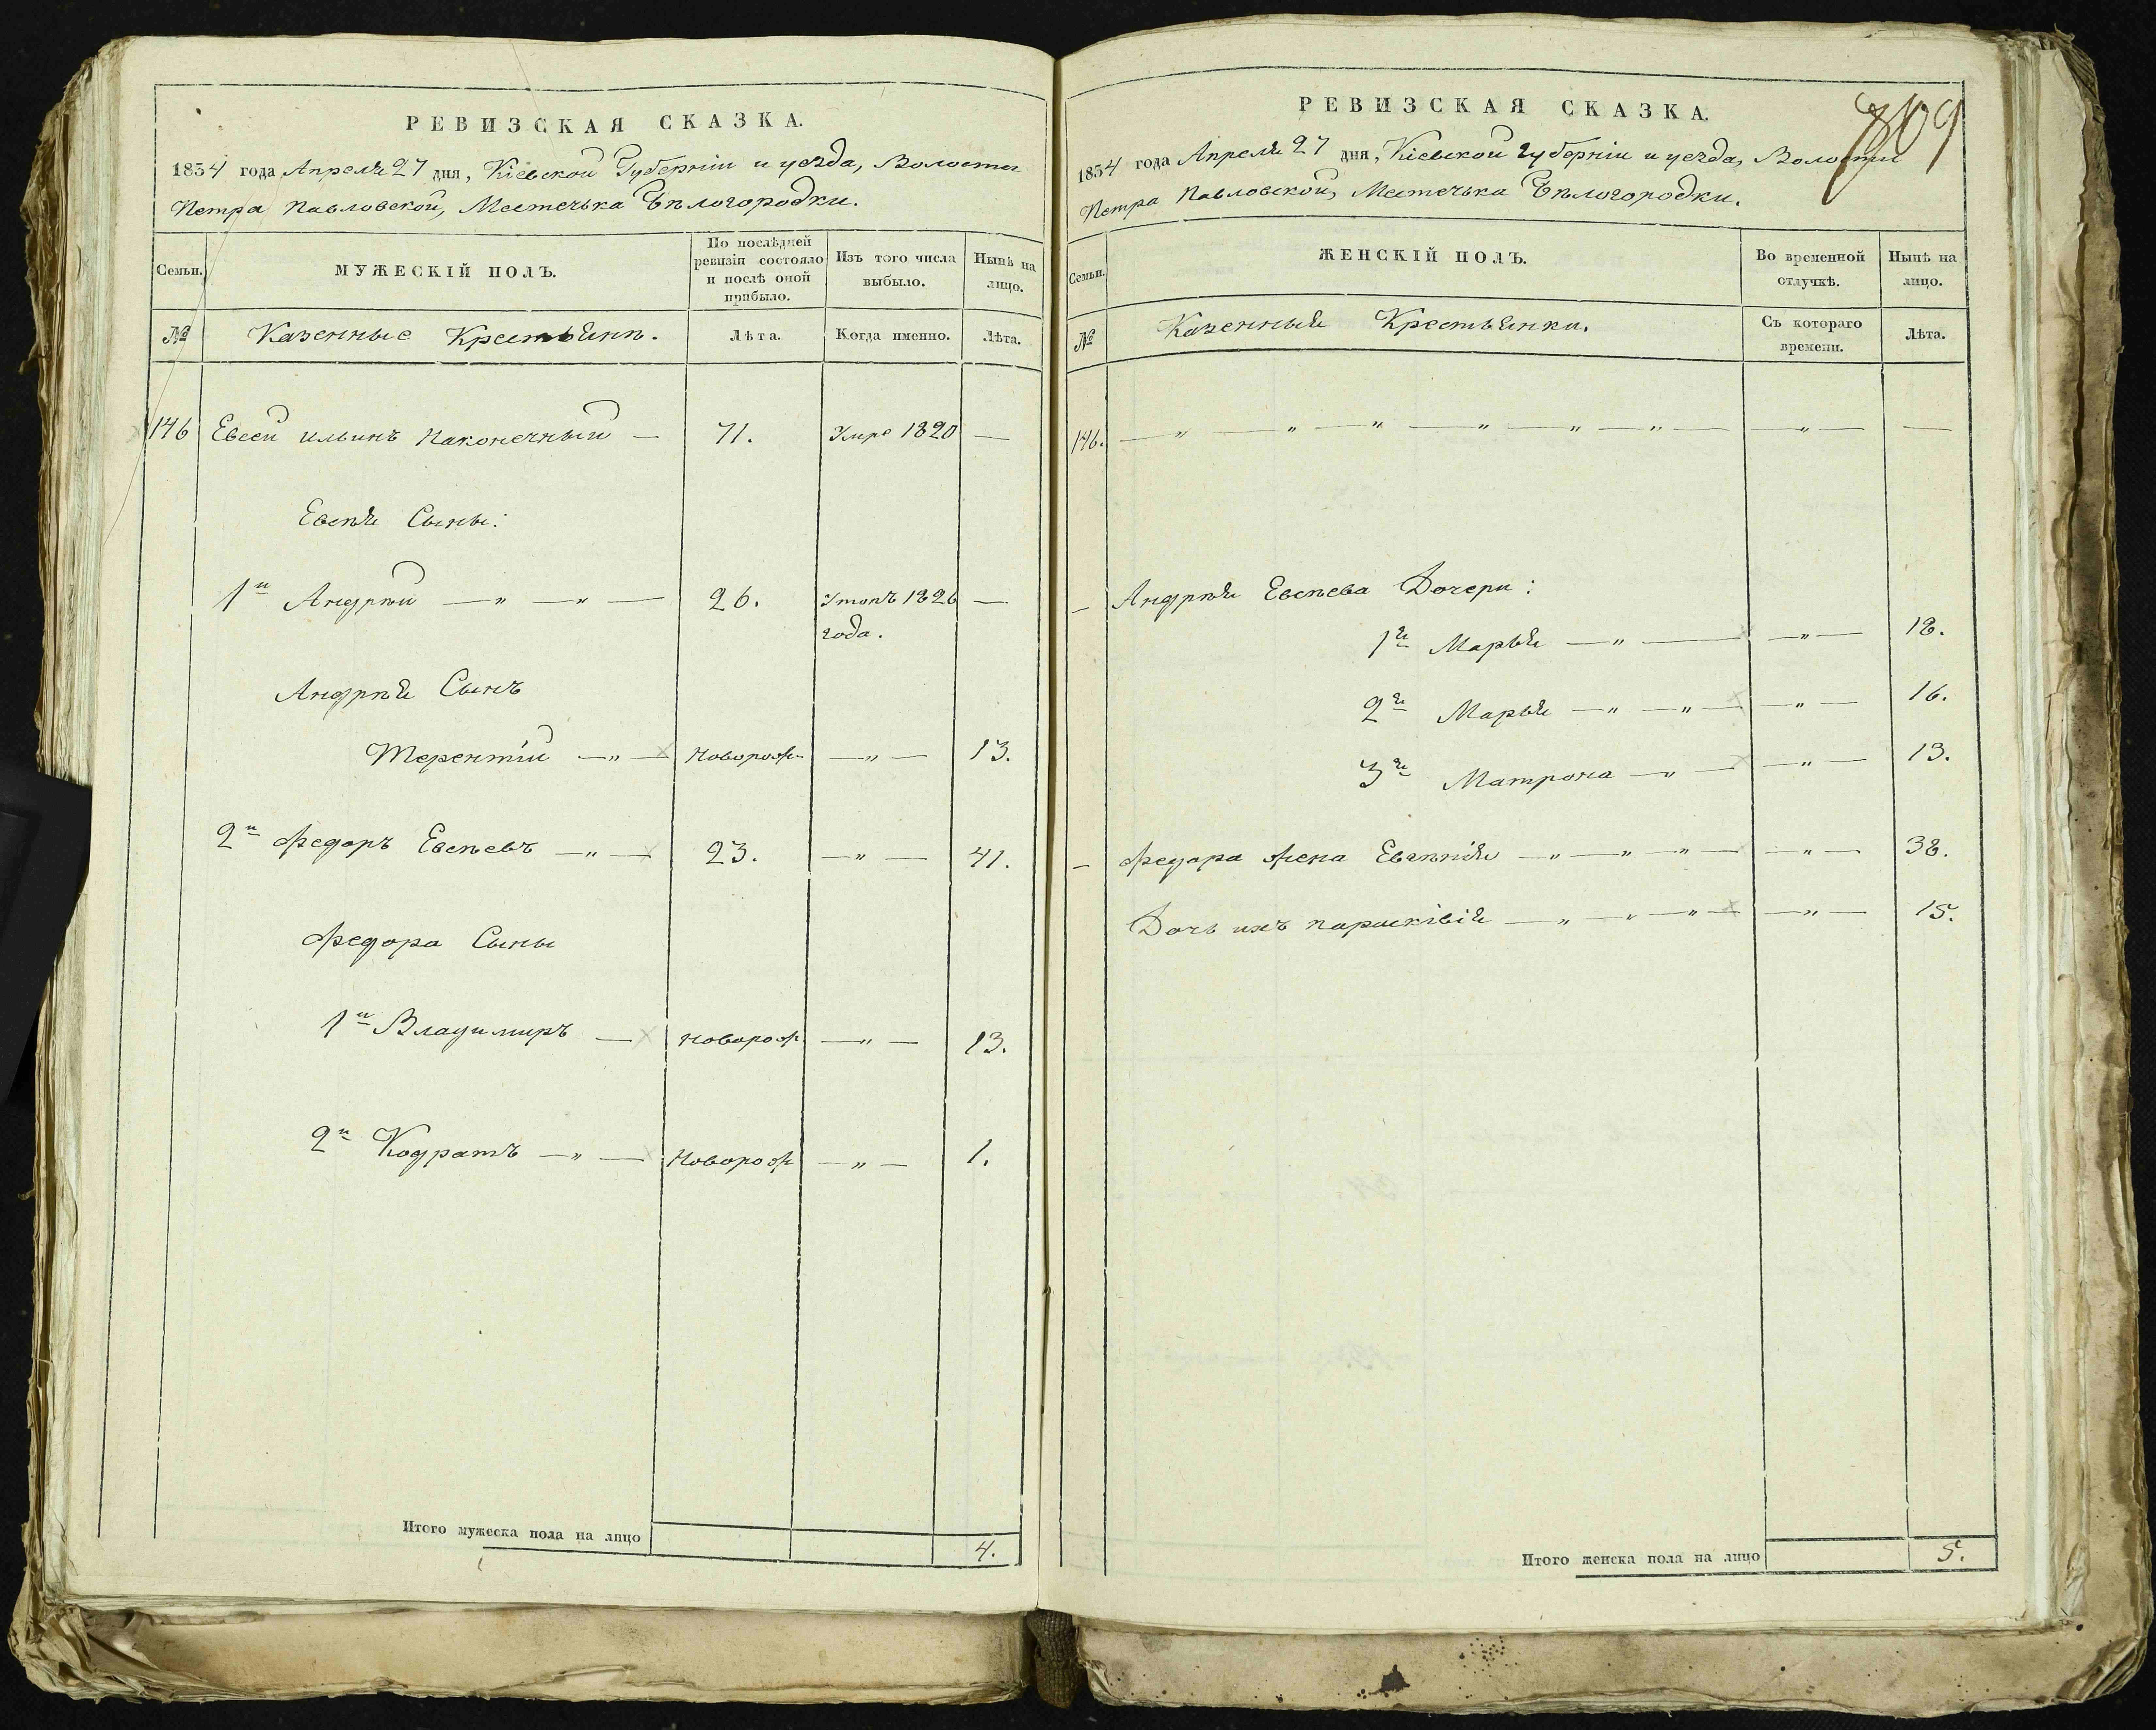 РЕВИЗСКАЯ СКАЗКА.
1834 года Апреля 27 дня, Кіевской Губерніи и уезда, Волости
Петра Павловской, Местечька Бѣлогородки.
Семьи.
МУЖЕСКІЙ ПОЛЪ.
По послѣдней ревизіи состояло и послѣ оной прибыло.
Изъ того числа выбыло.
Нынѣ на лицо.
№
Казенные Крестьянѣ.
Лѣта.
Когда именно.
Лѣта.
146 Евсей ильинъ Наконечный — 71. Умре 1820 —
Евсѣя Сыны:
1й Андрѣй — „ — „ — 26. Утопъ 1826 —
года.
Андрѣя Сынъ
Терентій — „ — новорож — „ — 13.
2й Федоръ Евсѣевъ — „ — 23. — „ — 41.
Федора Сыны
1й Владимиръ — новорож — „ — 13.
2й Кодратъ — „ — Новорож — „ — 1.
Итого мужеска пола на лицо 4.
809
РЕВИЗСКАЯ СКАЗКА.
1834 года Апреля 27 дня, Кіевской губерніи и уезда, Волости
Петра Павловской, Местечька Бѣлогородки.
Семьи.
ЖЕНСКІЙ ПОЛЪ.
Во временной отлучкѣ.
Нынѣ на лицо.
№
Казенныя Крестьянки.
Съ котораго времени.
Лѣта.
146. — „ — „ — „ — „ — „ — „ — — „ — —
— Андрѣя Евсѣева Дочери:
1я Марья — „ — — „ — 18.
2я Марья — „ — „ — — „ — 16.
3я Матрона — „ — — „ — 13.
— Федора жена Евгѣнія — „ — „ — „ — — „ — 38.
Дочь ихъ парасківія — „ — „ — „ — — „ — 15.
Итого женска пола на лицо 5.